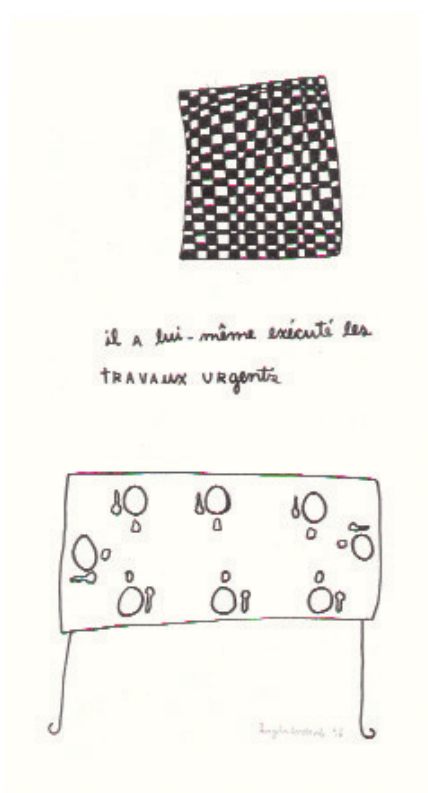 il A lui-même exécuté les
TRAVAUX URgents